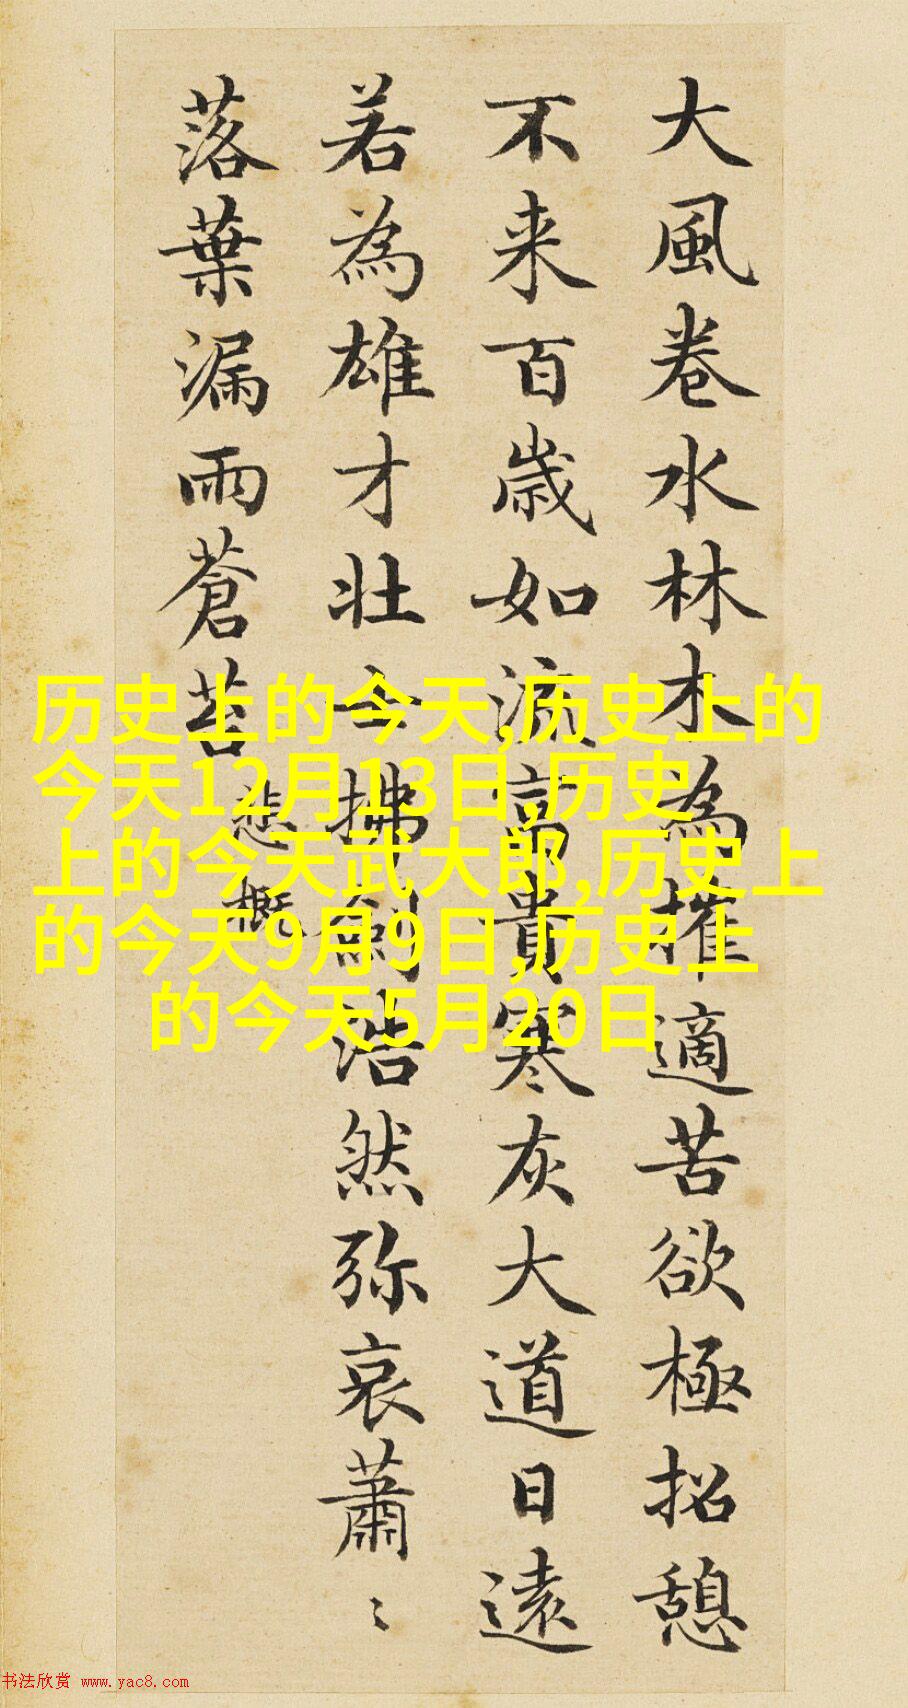 大風卷水林木為摧適苦欲極招憩
不来百歳如流富貴寒灰大道日遠
若為雄才壯今拂劍浩然弥哀蕭〻
落葉漏雨蒼苔
悲概
历史上的今天,历史上的
今天12月13日,历史
上的今天武大郎,历史上
的今天9月9日,历史上
的今天5月20日
书法欣赏 www.yac8.com